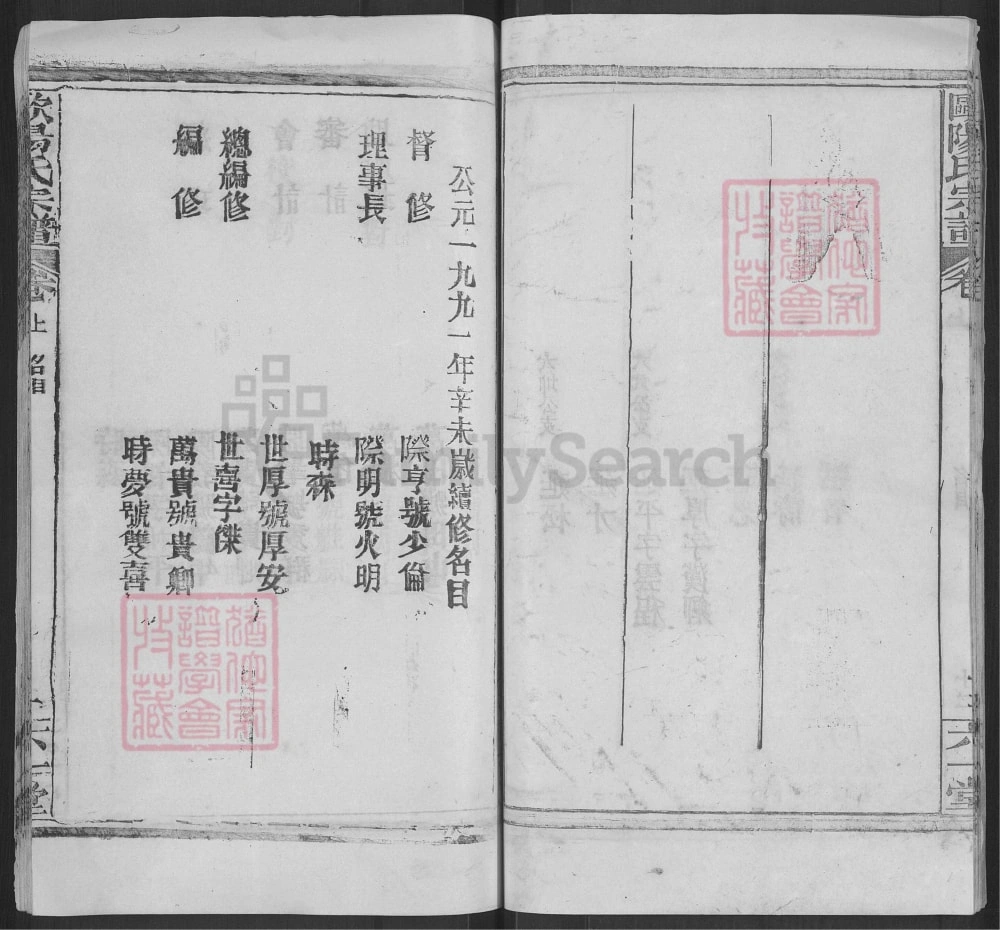 歐陽氏宗譜
卷
六一堂
公元一九九一年辛未歲續修名目
督修 際亨號少倫
理事長 際明號火明
時森
世厚號厚安
總編修 世喜字傑
編修 萬貴號貴卿
時夢號雙喜
歐陽氏宗譜
卷
上
六一堂
譜學會
收藏
譜學會
收藏
FamilySearch